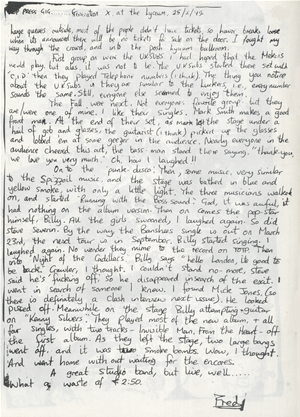 PRESS GIG. Generation X at the Lyceum, 25/2/79.
large queues outside, most of the people didn't have tickets so have breaks loose
when it's announced there will be no tickets on sale on the door. I fought my
way through the crowd, and into the posh Lyceum ballroom.
First group on were the UK Subs. I had hoped that the Members
would play, but alas, it was not to be. The UK Subs started their set with
'C.I.D' then they played Telephone numbers (I think). The thing you notice
about the UK Subs is they are number to the Lurkers, i.e. every number
sounds the same. Still, everyone seemed to enjoy them.
The Fall were next. Not everyones favourite group but they
are/were one of mine. I like their singles. Mark Smith makes a good
front man. At the end of their set, the stage under a
hail of gob and glasses, the guitarist (I think) picked up the glasses
and lobbed em at some geezer in the audience. Nearly everyone in the
audience cheered this act, the bass man stood there saying, "thank you
we love you very much." Oh, how I laughed!!
On to the punk disco. Then, some music, very similar
to the Sp.zzoil music and the stage was bathed in blue and
yellow smoke, with only a little light. The three musicians walked
on, and started 'Running with the Boss sound'. God, it was awful, it
had nothing on the album version. Then on comes the pop star
himself, Billy. All the girls swooned, I laughed again. So did
Steve Severin. By the way the Banshees single is out on March
23rd, the next tour is in September. Billy started singing, I
laughed again. No wonder they mime to the record on TOTP. Then
onto 'Night of the Cadillacs'. Billy says "hello London, its good to
be back." Crawler, I thought. I couldn't stand no more, Steve
said he's fucking off. So he disappeared in search of the exit. I
went in search of someone I knew. I found Mick Jones, (so
there is definately a Clash interview next issue). He looked
pissed off. Meanwhile on the stage Billy attempting guitar
on 'Kenny Silvers'. They played most of the new album, + all
for singles, with two tracks - Invisible Man, From the Heart - off
the first album. As they left the stage, two large bangs
went off, and it was two smoke bombs. Wow, I thought.
And went home without waiting for the encores.
A great studio band, but live, well.....
What a waste of £2.50.
Fred